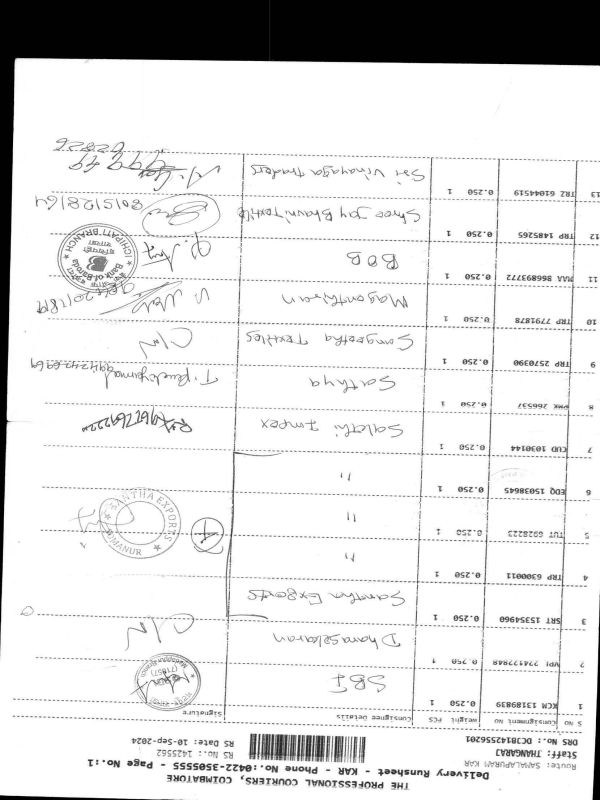 THE PROFESSIONAL COURIERS, COIMBATORE
Delivery Runsheet - KAR - Phone No.:0422-3505555 - Page No.:1
Route: SAMALAPURAM KAR
Staff: THANGARAJ
DRS No.: DC38142556201
RS No.: 1425562
RS Date: 10-Sep-2024
S No Consignment No Weight PCS Consignee Details Signature
1 KCM 13189839 0.250 1 SBI
2 VPI 0.250 1 Dhanasekaran C/N
3 SRT 15354960 0.250 1 Santha Exports
4 TRP 6300011 0.250 1 "
5 TUT 6928223 0.250 1 " 4
SANTHA EXPORTS
OMANUR
6 EDQ 15038645 0.250 1 "
7 CUD 1030144 0.250 1 Sakthi Impex
8 PMK 266537 0.250 1 Sathya
9 TRP 2570390 0.250 1 Sangeetha Textiles C/N
10 TRP 7791878 0.250 1
11 MAA 869893772 0.250 1 BOB
Bank of Baroda
ICHIPATI BRANCH
12 TRP 1485265 0.250 1 Shree Jay Bhavni Textile 8015128164
13 TRZ 61044519 0.250 1 Sri Vinayaga traders
02826